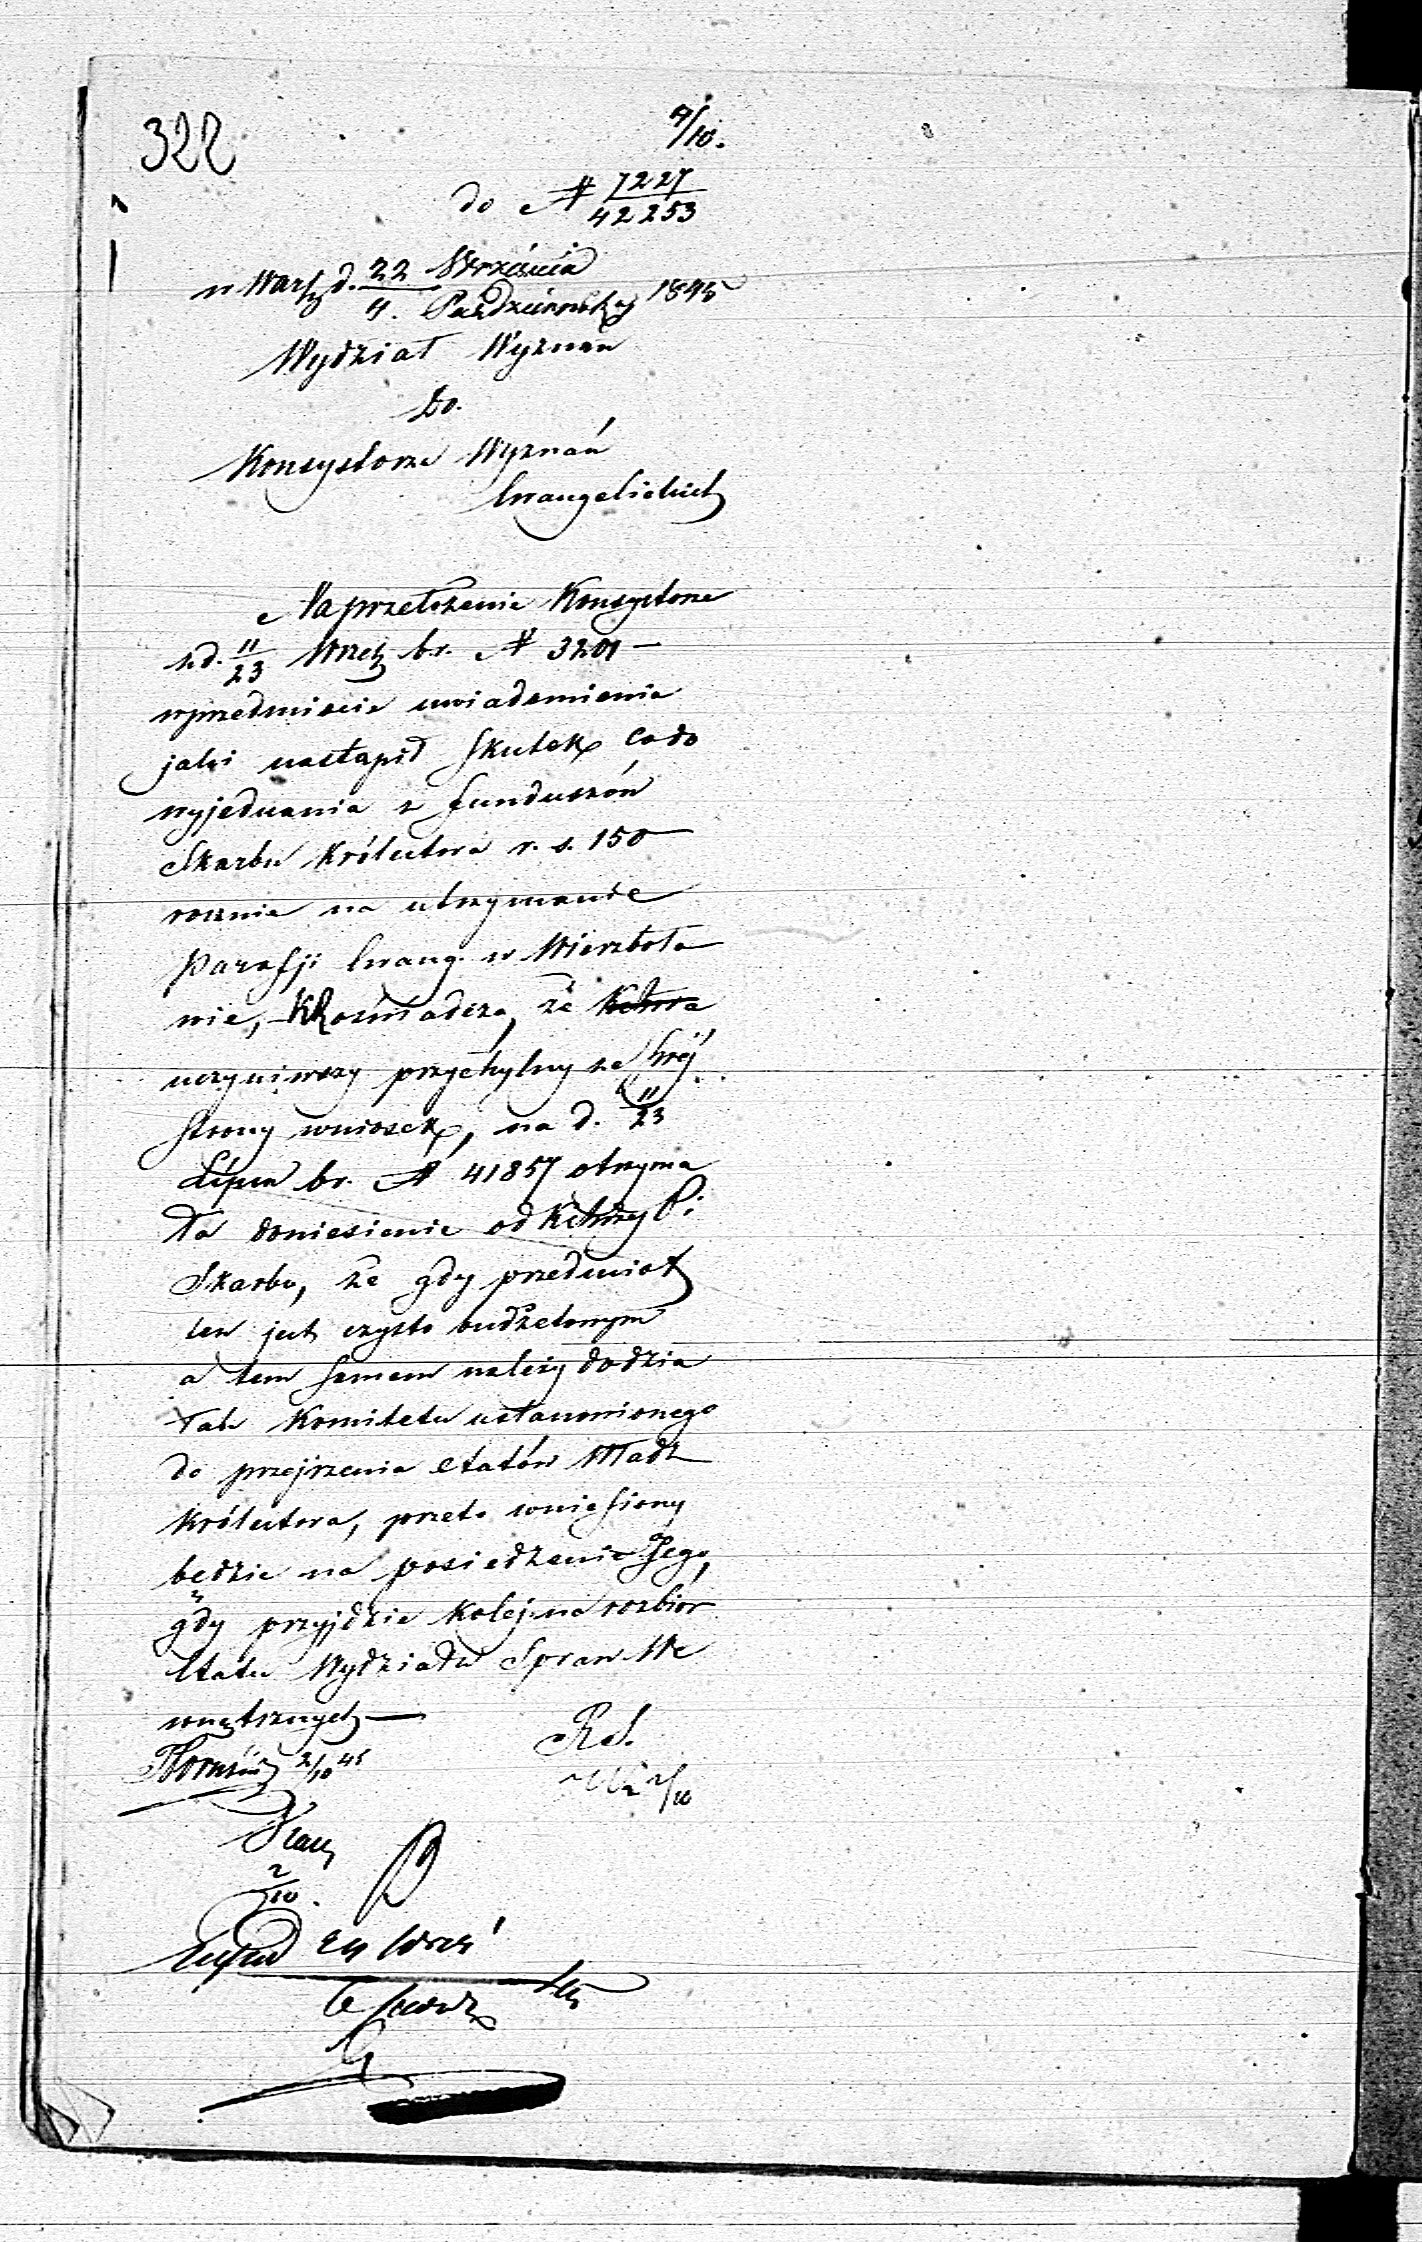 322
4/10.
do № 7227/42253
w Warsz. d. 22 Września / 4. Października 1845
Wydział Wyznań
Do
Konsystorza Wyznań
Ewangelickich
Na przełożenie Konsystorza
z d. 11/23 Wrześ. br. № 3201 —
w przedmiocie uwiadomienia
jaki nastąpił skutek co do
wyjednania z funduszów
Skarbu Królestwa r. s. 150
rocznie na utrzymanie
Parafji Ewang. w Wierzboło
wie, KR oświadcza, że
uczyniwszy przychylny ze swej
strony wniosek, na d. 11/23
Lipca br. № 41857 otrzyma
ła doniesienie od P i
Skarbu, że gdy przedmiot
ten jest czysto budżetowym
a tem samem należy do dzia
łań Komitetu ustanowionego
do przejrzenia etatów Władz
Królestwa, przeto wniesiony
będzie na posiedzenie Jego,
gdy przyjdzie kolej na rozbiór
Etatu Wydziału Spraw We
wnętrznych —
2/10 45
R. S.
2/10
2/10.